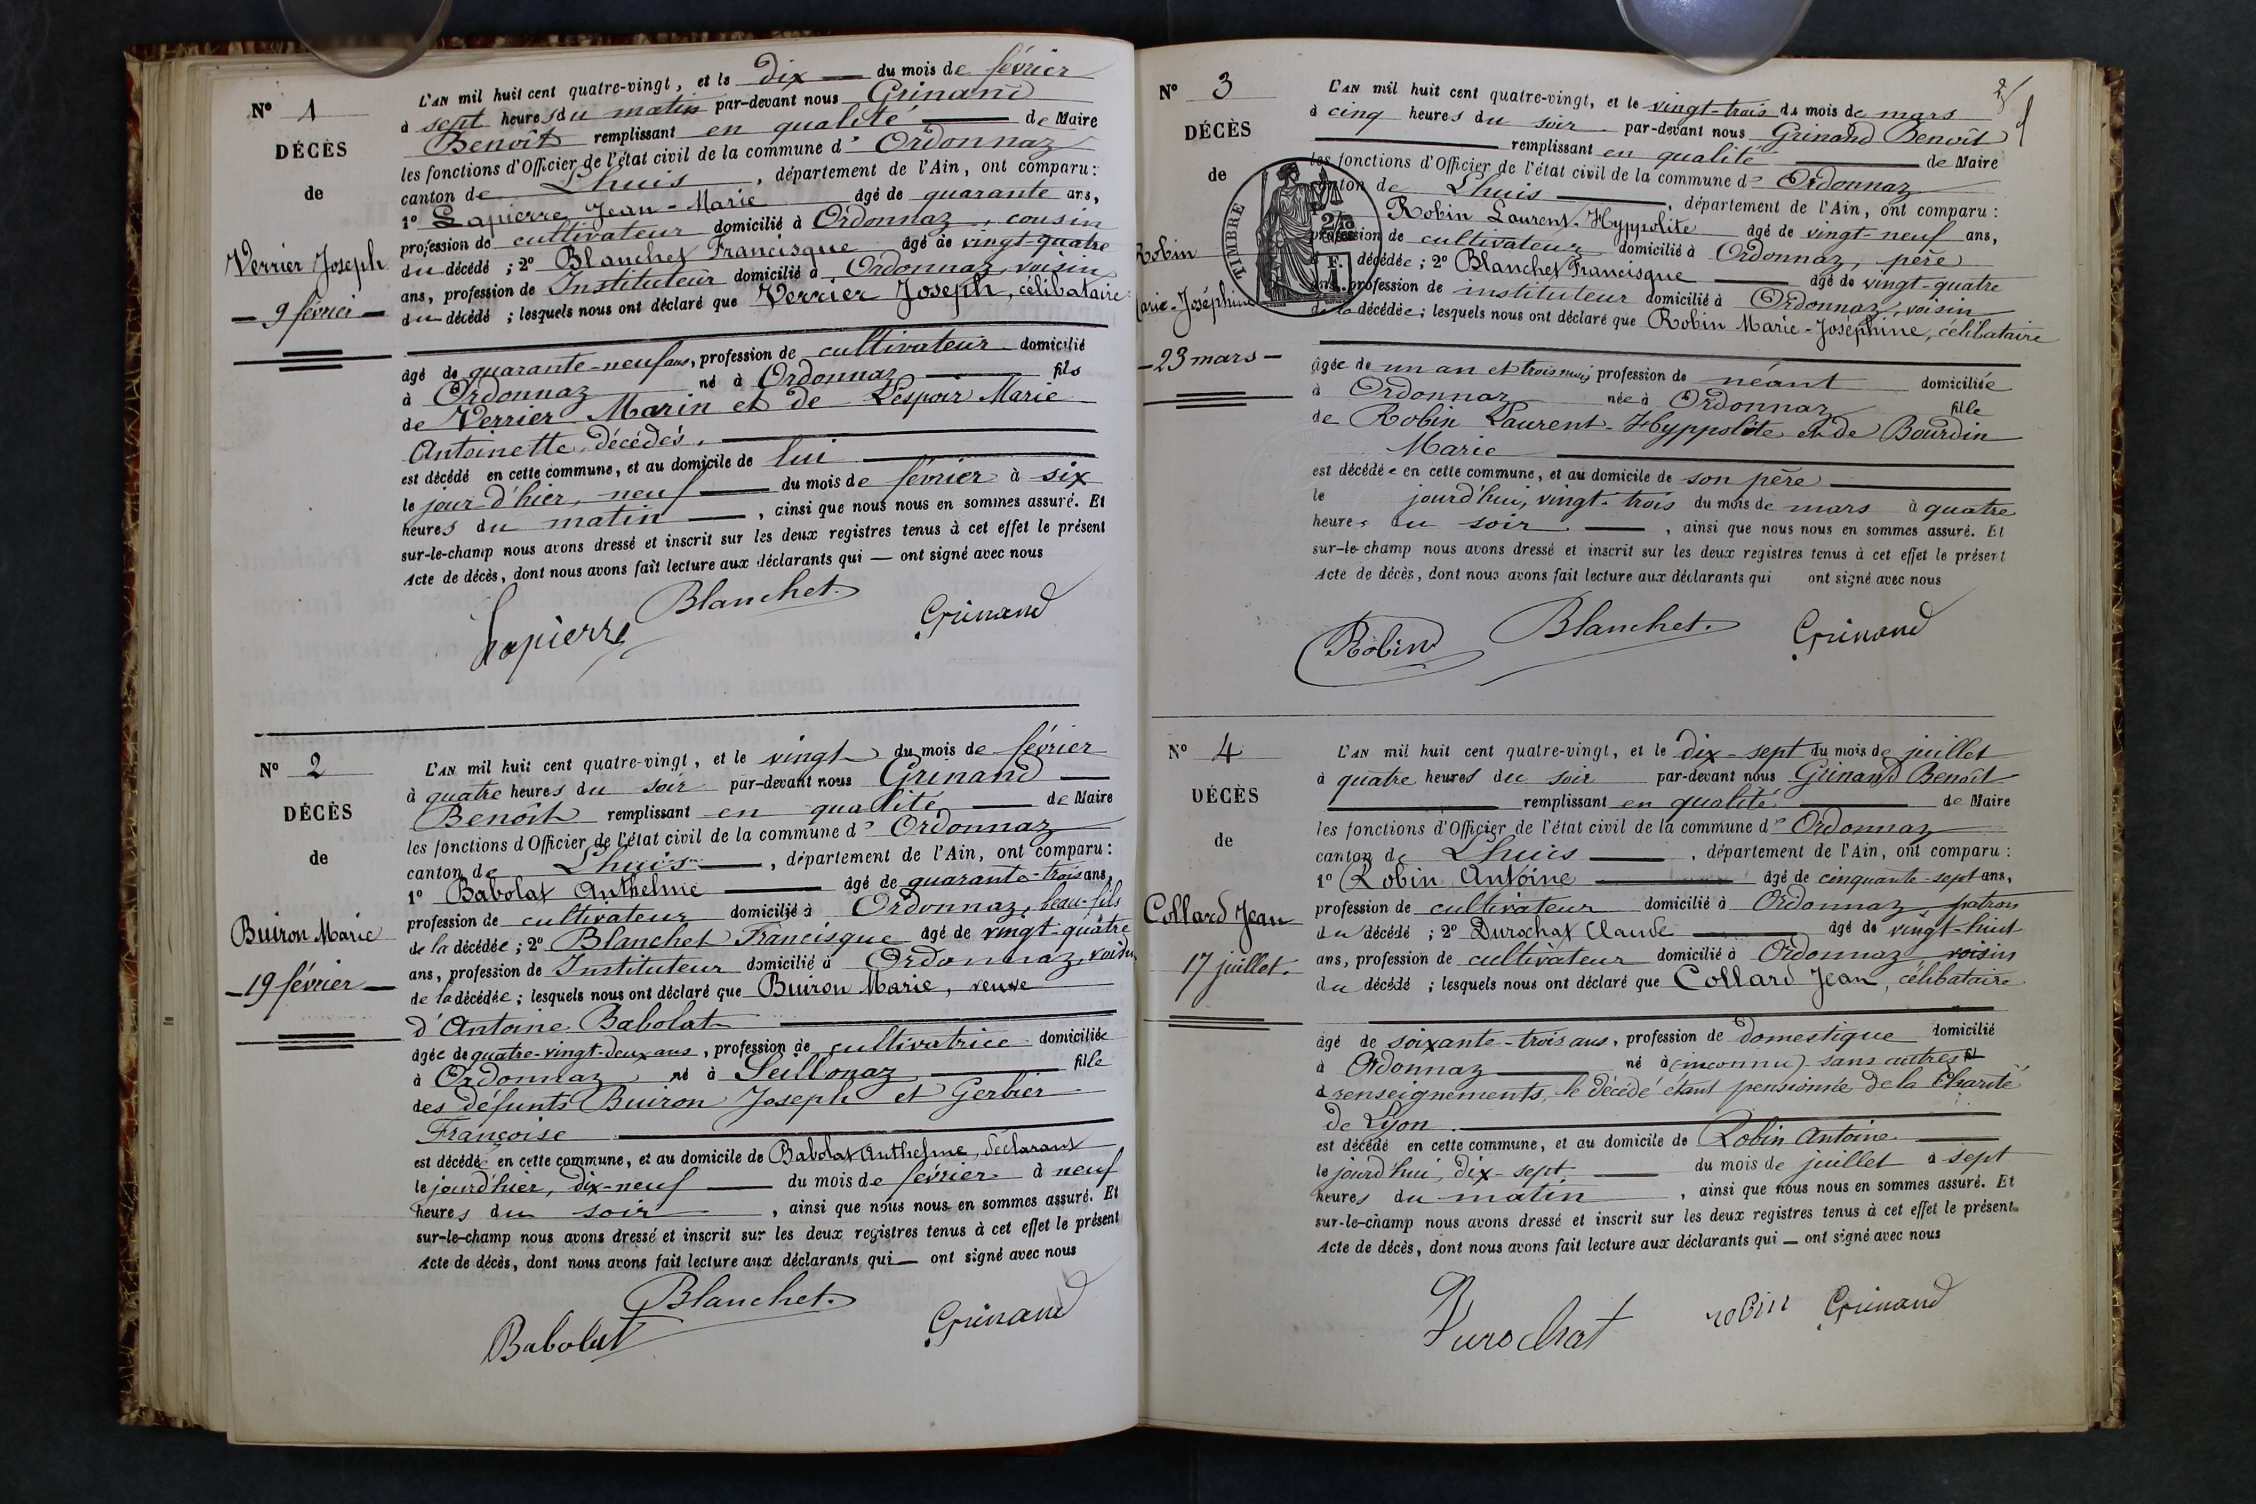 N° 1
DÉCÈS
de
Verrier Joseph
9 février
L'AN mil huit cent quatre-vingt, et le dix du mois de février
à sept heures du matin par-devant nous Grinand
Benoît remplissant en qualité de Maire
les fonctions d'Officier de l'état civil de la commune d'Ordonnaz
canton de Lhuis, département de l'Ain, ont comparu :
1° Lapierre Jean-Marie âgé de quarante ans,
profession de cultivateur domicilié à Ordonnaz, cousin
du décédé ; 2° Blanchet Francisque âgé de vingt-quatre
ans, profession de Instituteur domicilié à Ordonnaz, voisin
du décédé ; lesquels nous ont déclaré que Verrier Joseph, célibataire
âgé de quarante-neuf ans, profession de cultivateur domicilié
à Ordonnaz né à Ordonnaz fils
de Verrier Marin et de Lespoir Marie
Antoinette, décédés.
est décédé en cette commune, et au domicile de lui
le jour d'hier, neuf du mois de février à six
heures du matin, ainsi que nous nous en sommes assuré. Et
sur-le-champ nous avons dressé et inscrit sur les deux registres tenus à cet effet le présent
Acte de décès, dont nous avons fait lecture aux déclarants qui — ont signé avec nous
Lapierre Blanchet. Grinand
N° 2
DÉCÈS
de
Buiron Marie
19 février
L'AN mil huit cent quatre-vingt, et le vingt du mois de février
à quatre heures du soir par-devant nous Grinand
Benoît remplissant en qualité de Maire
les fonctions d'Officier de l'état civil de la commune d'Ordonnaz
canton de Lhuis, département de l'Ain, ont comparu :
1° Babolat Anthelme âgé de quarante-trois ans,
profession de cultivateur domicilié à Ordonnaz, beau-fils
de la décédée ; 2° Blanchet Francisque âgé de vingt-quatre
ans, profession de Instituteur domicilié à Ordonnaz, voisin
de la décédée ; lesquels nous ont déclaré que Buiron Marie, veuve
d'Antoine Babolat
âgée de quatre-vingt-deux ans, profession de cultivatrice domiciliée
à Ordonnaz né à Seillonaz fille
des défunts Buiron Joseph et Gerbier
Françoise
est décédée en cette commune, et au domicile de Babolat Anthelme, déclarant
le jourd'hier, dix-neuf du mois de février à neuf
heures du soir, ainsi que nous nous en sommes assuré. Et
sur-le-champ nous avons dressé et inscrit sur les deux registres tenus à cet effet le présent
Acte de décès, dont nous avons fait lecture aux déclarants qui — ont signé avec nous
Babolat Blanchet. Grinand
N° 3
DÉCÈS
de
Robin
Marie-Joséphine
23 mars
TIMBRE
L'AN mil huit cent quatre-vingt, et le vingt-trois du mois de mars
à cinq heures du soir par-devant nous Grinand Benoît
remplissant en qualité de Maire
les fonctions d'Officier de l'état civil de la commune d'Ordonnaz
canton de Lhuis, département de l'Ain, ont comparu :
Robin Laurent-Hyppolite âgé de vingt-neuf ans,
profession de cultivateur domicilié à Ordonnaz, père
décédée ; 2° Blanchet Francisque âgé de vingt-quatre
ans, profession de instituteur domicilié à Ordonnaz, voisin
de la décédée ; lesquels nous ont déclaré que Robin Marie-Joséphine, célibataire
âgée de un an et trois mois profession de néant domiciliée
à Ordonnaz née à Ordonnaz fille
de Robin Laurent-Hyppolite et de Bourdin
Marie
est décédée en cette commune, et au domicile de son père
le jourd'hui, vingt-trois du mois de mars à quatre
heures du soir, ainsi que nous nous en sommes assuré. Et
sur-le-champ nous avons dressé et inscrit sur les deux registres tenus à cet effet le présent
Acte de décès, dont nous avons fait lecture aux déclarants qui ont signé avec nous
Robin Blanchet. Grinand
N° 4
DÉCÈS
de
Collard Jean
17 juillet.
L'AN mil huit cent quatre-vingt, et le dix-sept du mois de juillet
à quatre heures du soir par-devant nous Grinand Benoît
remplissant en qualité de Maire
les fonctions d'Officier de l'état civil de la commune d'Ordonnaz
canton de Lhuis, département de l'Ain, ont comparu :
1° Robin Antoine âgé de cinquante-sept ans,
profession de cultivateur domicilié à Ordonnaz patron
du décédé ; 2° Durochat Claude âgé de vingt-huit
ans, profession de cultivateur domicilié à Ordonnaz voisin
du décédé ; lesquels nous ont déclaré que Collard Jean, célibataire
âgé de soixante-trois ans, profession de domestique domicilié
à Ordonnaz né à (inconnu) sans autres
renseignements, le décédé étant pensionné de la Charité
de Lyon.
est décédé en cette commune, et au domicile de Robin Antoine
le jourd'hui, dix-sept du mois de juillet à sept
heures du matin, ainsi que nous nous en sommes assuré. Et
sur-le-champ nous avons dressé et inscrit sur les deux registres tenus à cet effet le présent
Acte de décès, dont nous avons fait lecture aux déclarants qui — ont signé avec nous
Durochat robin Grinand